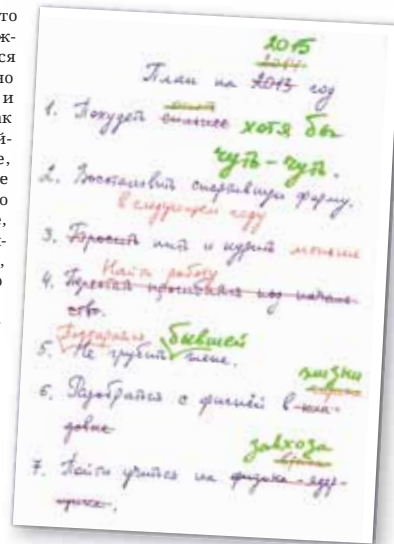 то
ж-
ся
но
и
ак
й-
е,
е
о
е,
и-
,
о
2015
2014
План на 2013 год
1. Похудеть сильнее хотя бы
чуть-чуть.
2. Восстановить спортивную форму.
в следующем году
3. Бросить пить и курить меньше
Найти работу
4. Перестать
ство.
Бывшей
5. Не грубить жене.
жизни
6. Разобраться с фигнёй в кла-
довке
завхоза
врача
7. Пойти учиться на физика-ядер-
щика.